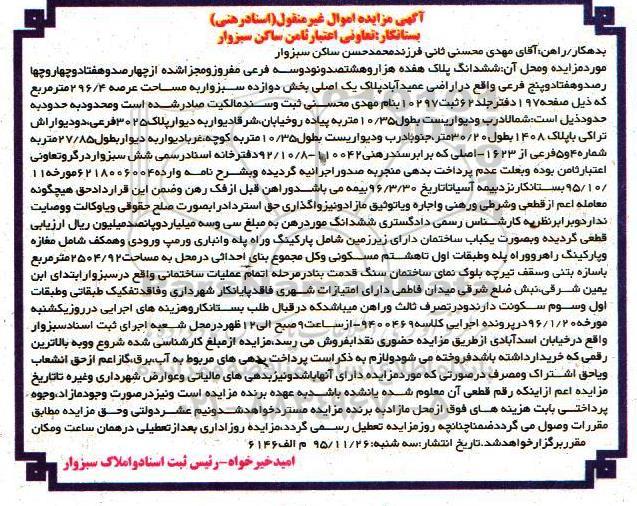 آگهی مزایده اموال غیرمنقول(اسنادرهنی)
بستانکار:تعاونی اعتبارثامن ساکن سبزوار
بدهکار/راهن:آقای مهدی محسنی ثانی فرزندمحمدحسن ساکن سبزوار
موردمزایده ومحل آن:ششدانگ پلاک هفده هزاروهشتصدونودوسه فرعی مفروزومجزاشده ازچهارصدوهفتادوچهاروچها
رصدوهفتادوپنج فرعی واقع دراراضی عمیدآبادپلاک یک اصلی بخش دوازده سبزواربه مساحت عرصه ۲۹۶/۴مترمربع
که ذیل صفحه۱۹۷دفترجلد ۶۲ثبت۱۰۲۹۷بنام مهدی محسنی ثبت وسندمالکیت صادرشده است ومحدودبه حدودبه
حدودذیل است:شمالادرب ودیواریست بطول۱۰/۳۵متربه پیاده روخیابان،شرقادیواربه دیوارپلاک۳۰۲۵فرعی،دودیواراش
تراکی باپلاک ۱۴۰۸بطول۲۰/۳۰متر،جنوبادرب ودیواریست بطول۱۰/۳۵متربه کوچه،غربادیواربه دیواربطول۲۷/۸۵متربه
شماره۴و۵فرعی از ۱۶۲۳-اصلی که برابرسندرهنی۱۰۰۴۲-۹۲/۱۰/۸دفترخانه اسنادرسمی شش سبزواردرگروتعاونی
اعتبارثامن بوده وبعلت عدم پرداخت بدهی منجربه صدوراجرائیه گردیده وبشرح نامه وارده۶۲۱۸۰۰۶۰۰۴مورخه۱۱
/۹۵/۱۰بستانکارنزدبیمه آسیاتاتاریخ ۹۶/۳/۳۰بیمه می باشدوراهن قبل ازفک رهن وضمن این قراردادحق هیچگونه
معامله اعم ازقطعی وشرطی ورهنی واجاره ویاتوثیق مازادونیزواگذاری حق استردادرابصورت صلح حقوقی ویاوکالت ووصایت
نداردوبرابرنظریه کارشناس رسمی دادگستری ششدانگ موردرهن به مبلغ سی وسه میلیاردوپانصدمیلیون ریال ارزیابی
قطعی گردیده وبصورت یکباب ساختمان دارای زیرزمین شامل پارکینگ وراه پله وانباری ورمپ ورودی وهمکف شامل مغازه
وپارکینگ راهرووراه پله وطبقات اول تاهشتم مسکونی وکل مجموع بنای احداثی درمحل به مساحت۲۵۰۴/۹۲مترمربع
باسازه بتنی وسقف تیرچه بلوک نمای ساختمان سنگ قدمت بنادرمرحله اتمام عملیات ساختمانی واقع درسبزوارابتدای ابن
یمین شرقی،نبش ضلع شرقی میدان فاطمی دارای امتیازات شهری فاقدپایانکار شهرداری وفاقدتفکیک طبقاتی وطبقات
اول وسوم سکونت دارندودرتصرف ثالث وراهن میباشدکه درقبال طلب بستانکاروهزینه های اجرایی درروزیکشنبه
مورخه۹۶/۱/۲۰درپرونده اجرایی کلاسه۹۴۰۰۴۶۹-ازساعت۹صبح الی۱۲ظهردرمحل شعبه اجرای ثبت اسنادسبزوار
واقع درخیابان اسدآبادی ازطریق مزایده حضوری نقدابفروش می رسد،مزایده ازمبلغ کارشناسی شده شروع ووبه بالاترین
رقمی که خریدارداشته باشدفروخته می شودولازم به ذکراست پرداخت بدهی های مربوط به آب،برق،گازاعم ازحق انشعاب
ویاحق اشتراک ومصرف درصورتی که موردمزایده دارای آنهاباشدونیزبدهی های مالیاتی وعوارض شهرداری وغیره تاتاریخ
مزایده اعم ازاینکه رقم قطعی آن معلوم شده یانشده باشدبه عهده برنده مزایده است ونیزدرصورت وجودمازاد،وجوه
پرداختی بابت هزینه های فوق ازمحل مازادبه برنده مزایده مستردخواهدشدونیم عشردولتی وحق مزایده مطابق
مقررات وصول می گرددضمناچنانچه روزمزایده تعطیل رسمی گردد،مزایده روزاداری بعدازتعطیلی درهمان ساعت ومکان
مقرربرگزارخواهدشد.تاریخ انتشار:سه شنبه:۹۵/۱۱/۲۶ م الف۶۱۴۶
امیدخیرخواه-رئیس ثبت اسنادواملاک سبزوار